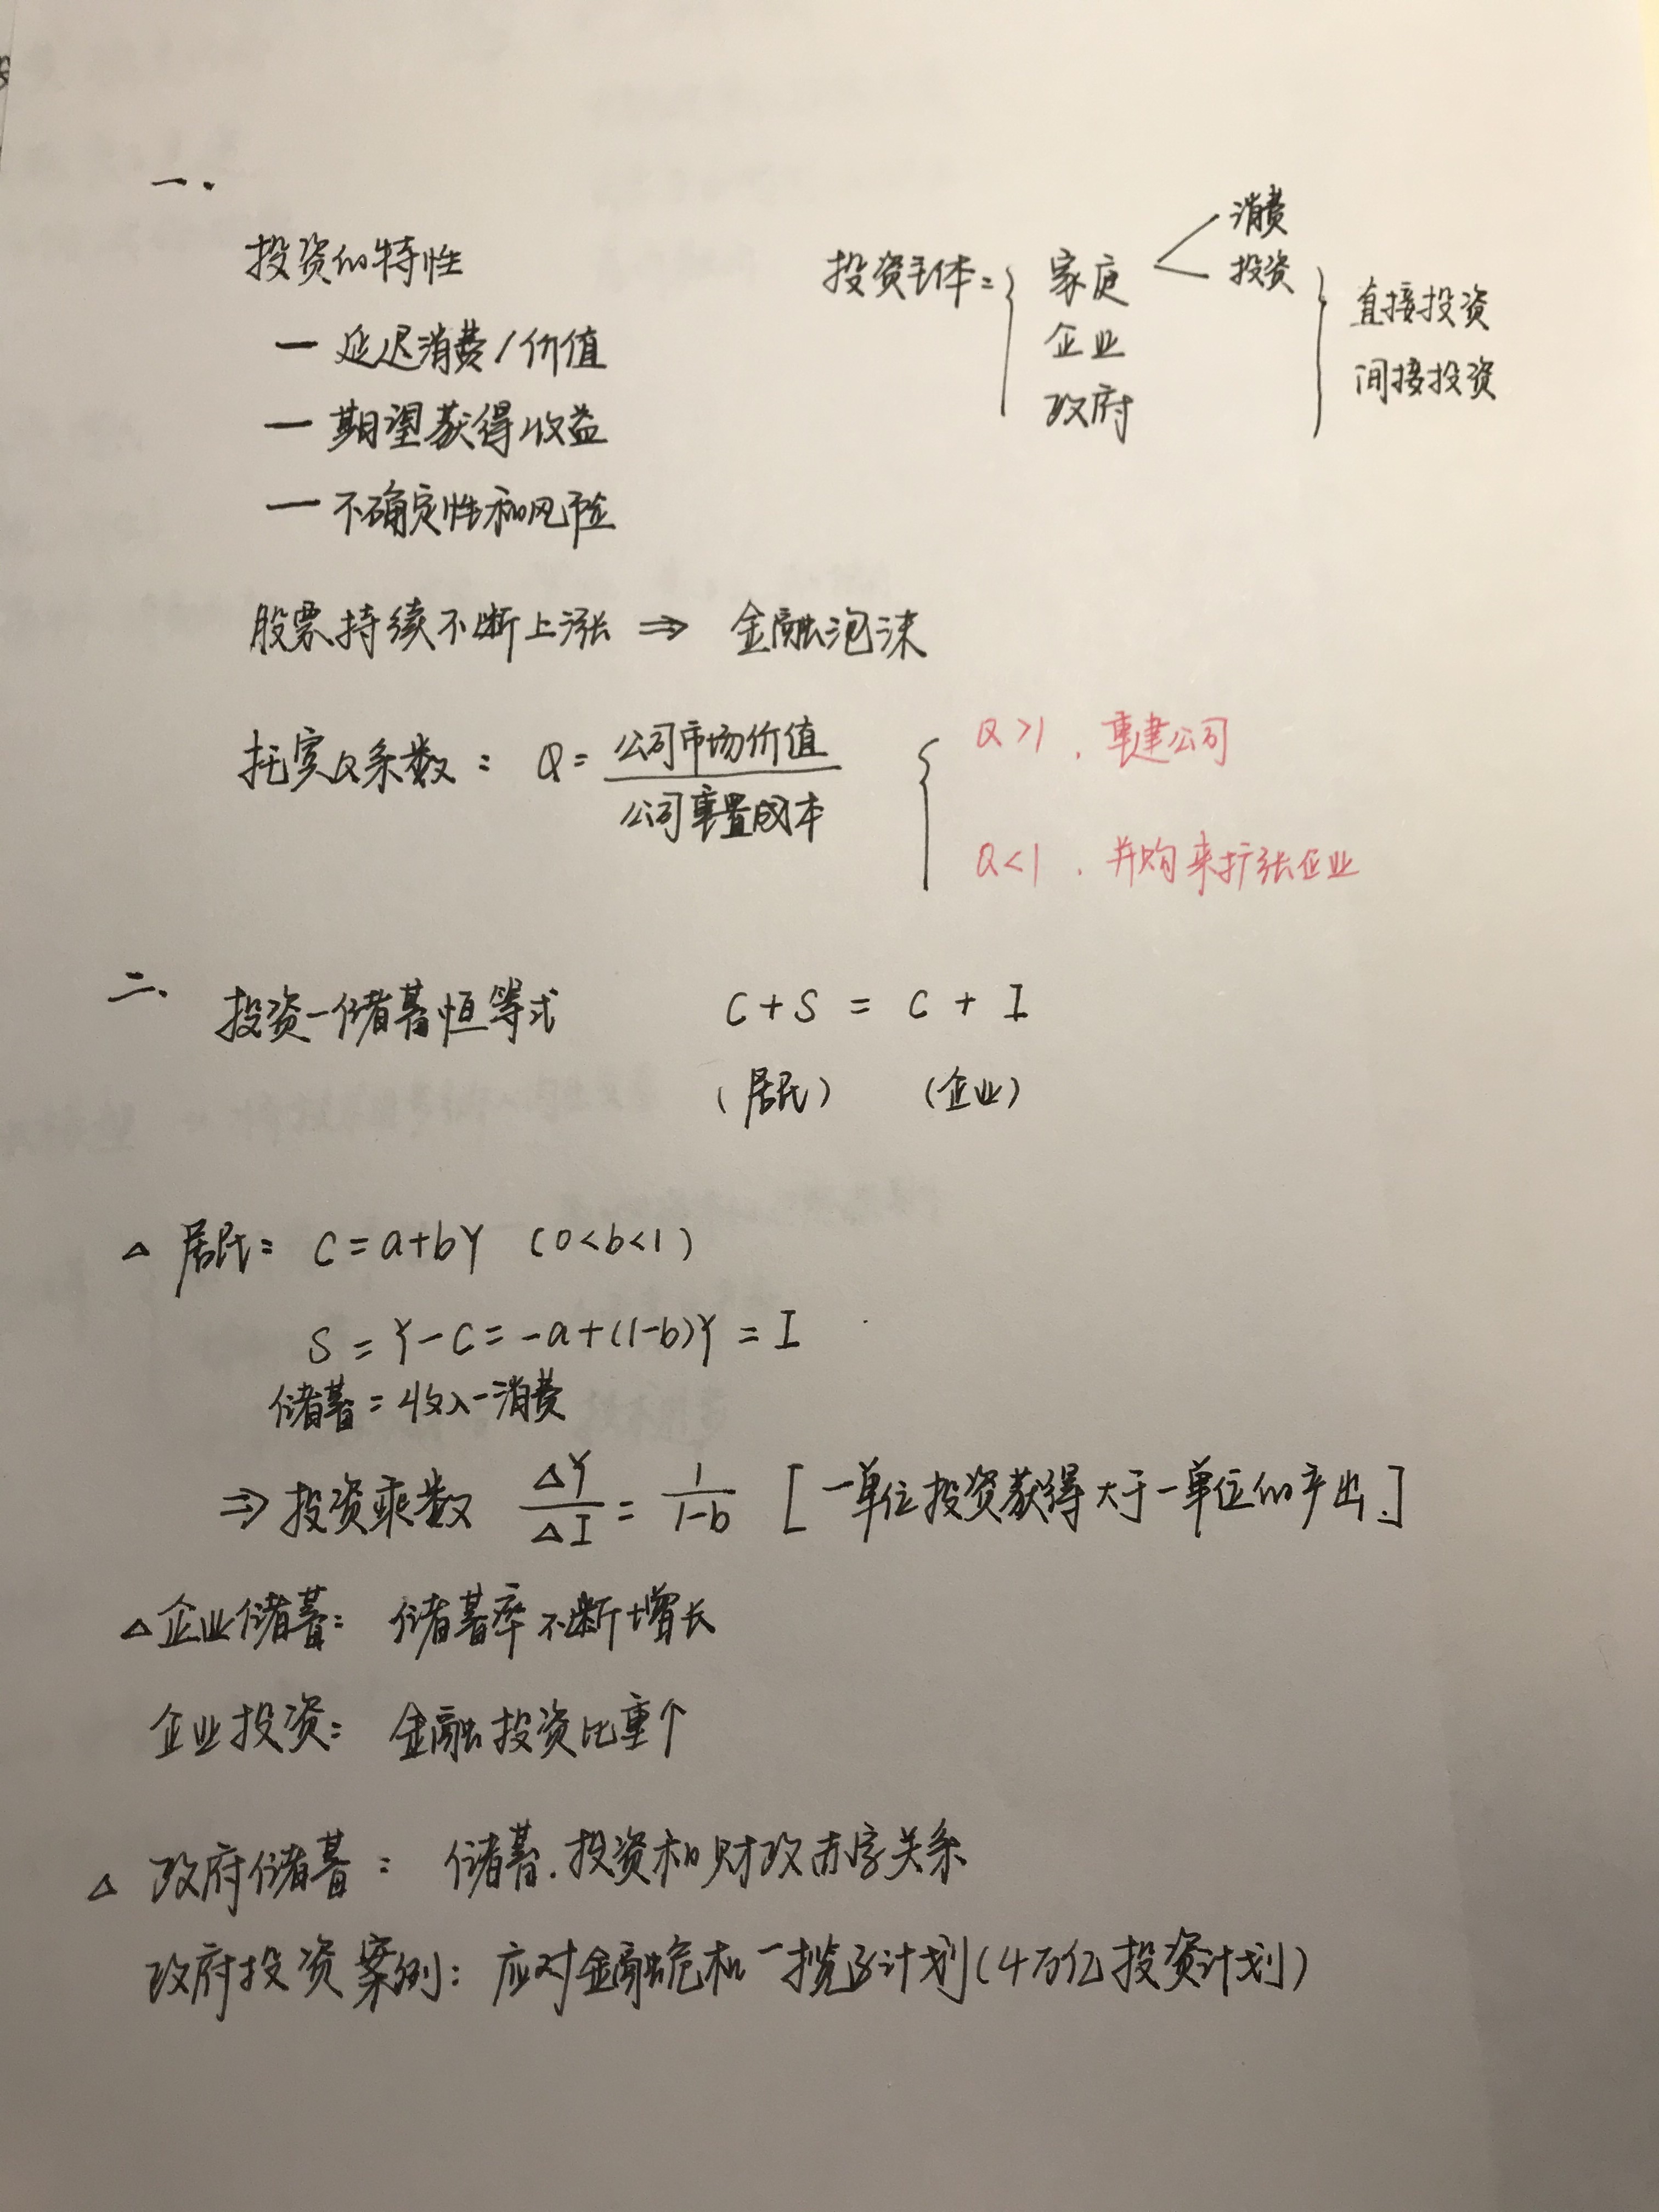 一.
投资的特性
— 延迟消费/价值
— 期望获得收益
— 不确定性和风险
投资主体: { 家庭 < 消费 投资
企业
政府
} 直接投资
间接投资
股票持续不断上涨 ⇒ 金融泡沫
托宾Q系数: Q = 公司市场价值 / 公司重置成本
{ Q>1. 重建公司
Q<1. 并购来扩张企业
二. 投资—储蓄恒等式 C+S = C+I
(居民) (企业)
△ 居民: C=a+bY (0<b<1)
S=Y-C=-a+(1-b)Y=I
储蓄=收入-消费
⇒ 投资乘数 ΔY/ΔI = 1/1-b [一单位投资获得大于一单位的产出.]
△ 企业储蓄: 储蓄率不断增长
企业投资: 金融投资比重↑
△ 政府储蓄: 储蓄.投资和财政赤字关系
政府投资案例: 应对金融危机一揽子计划(4万亿投资计划)